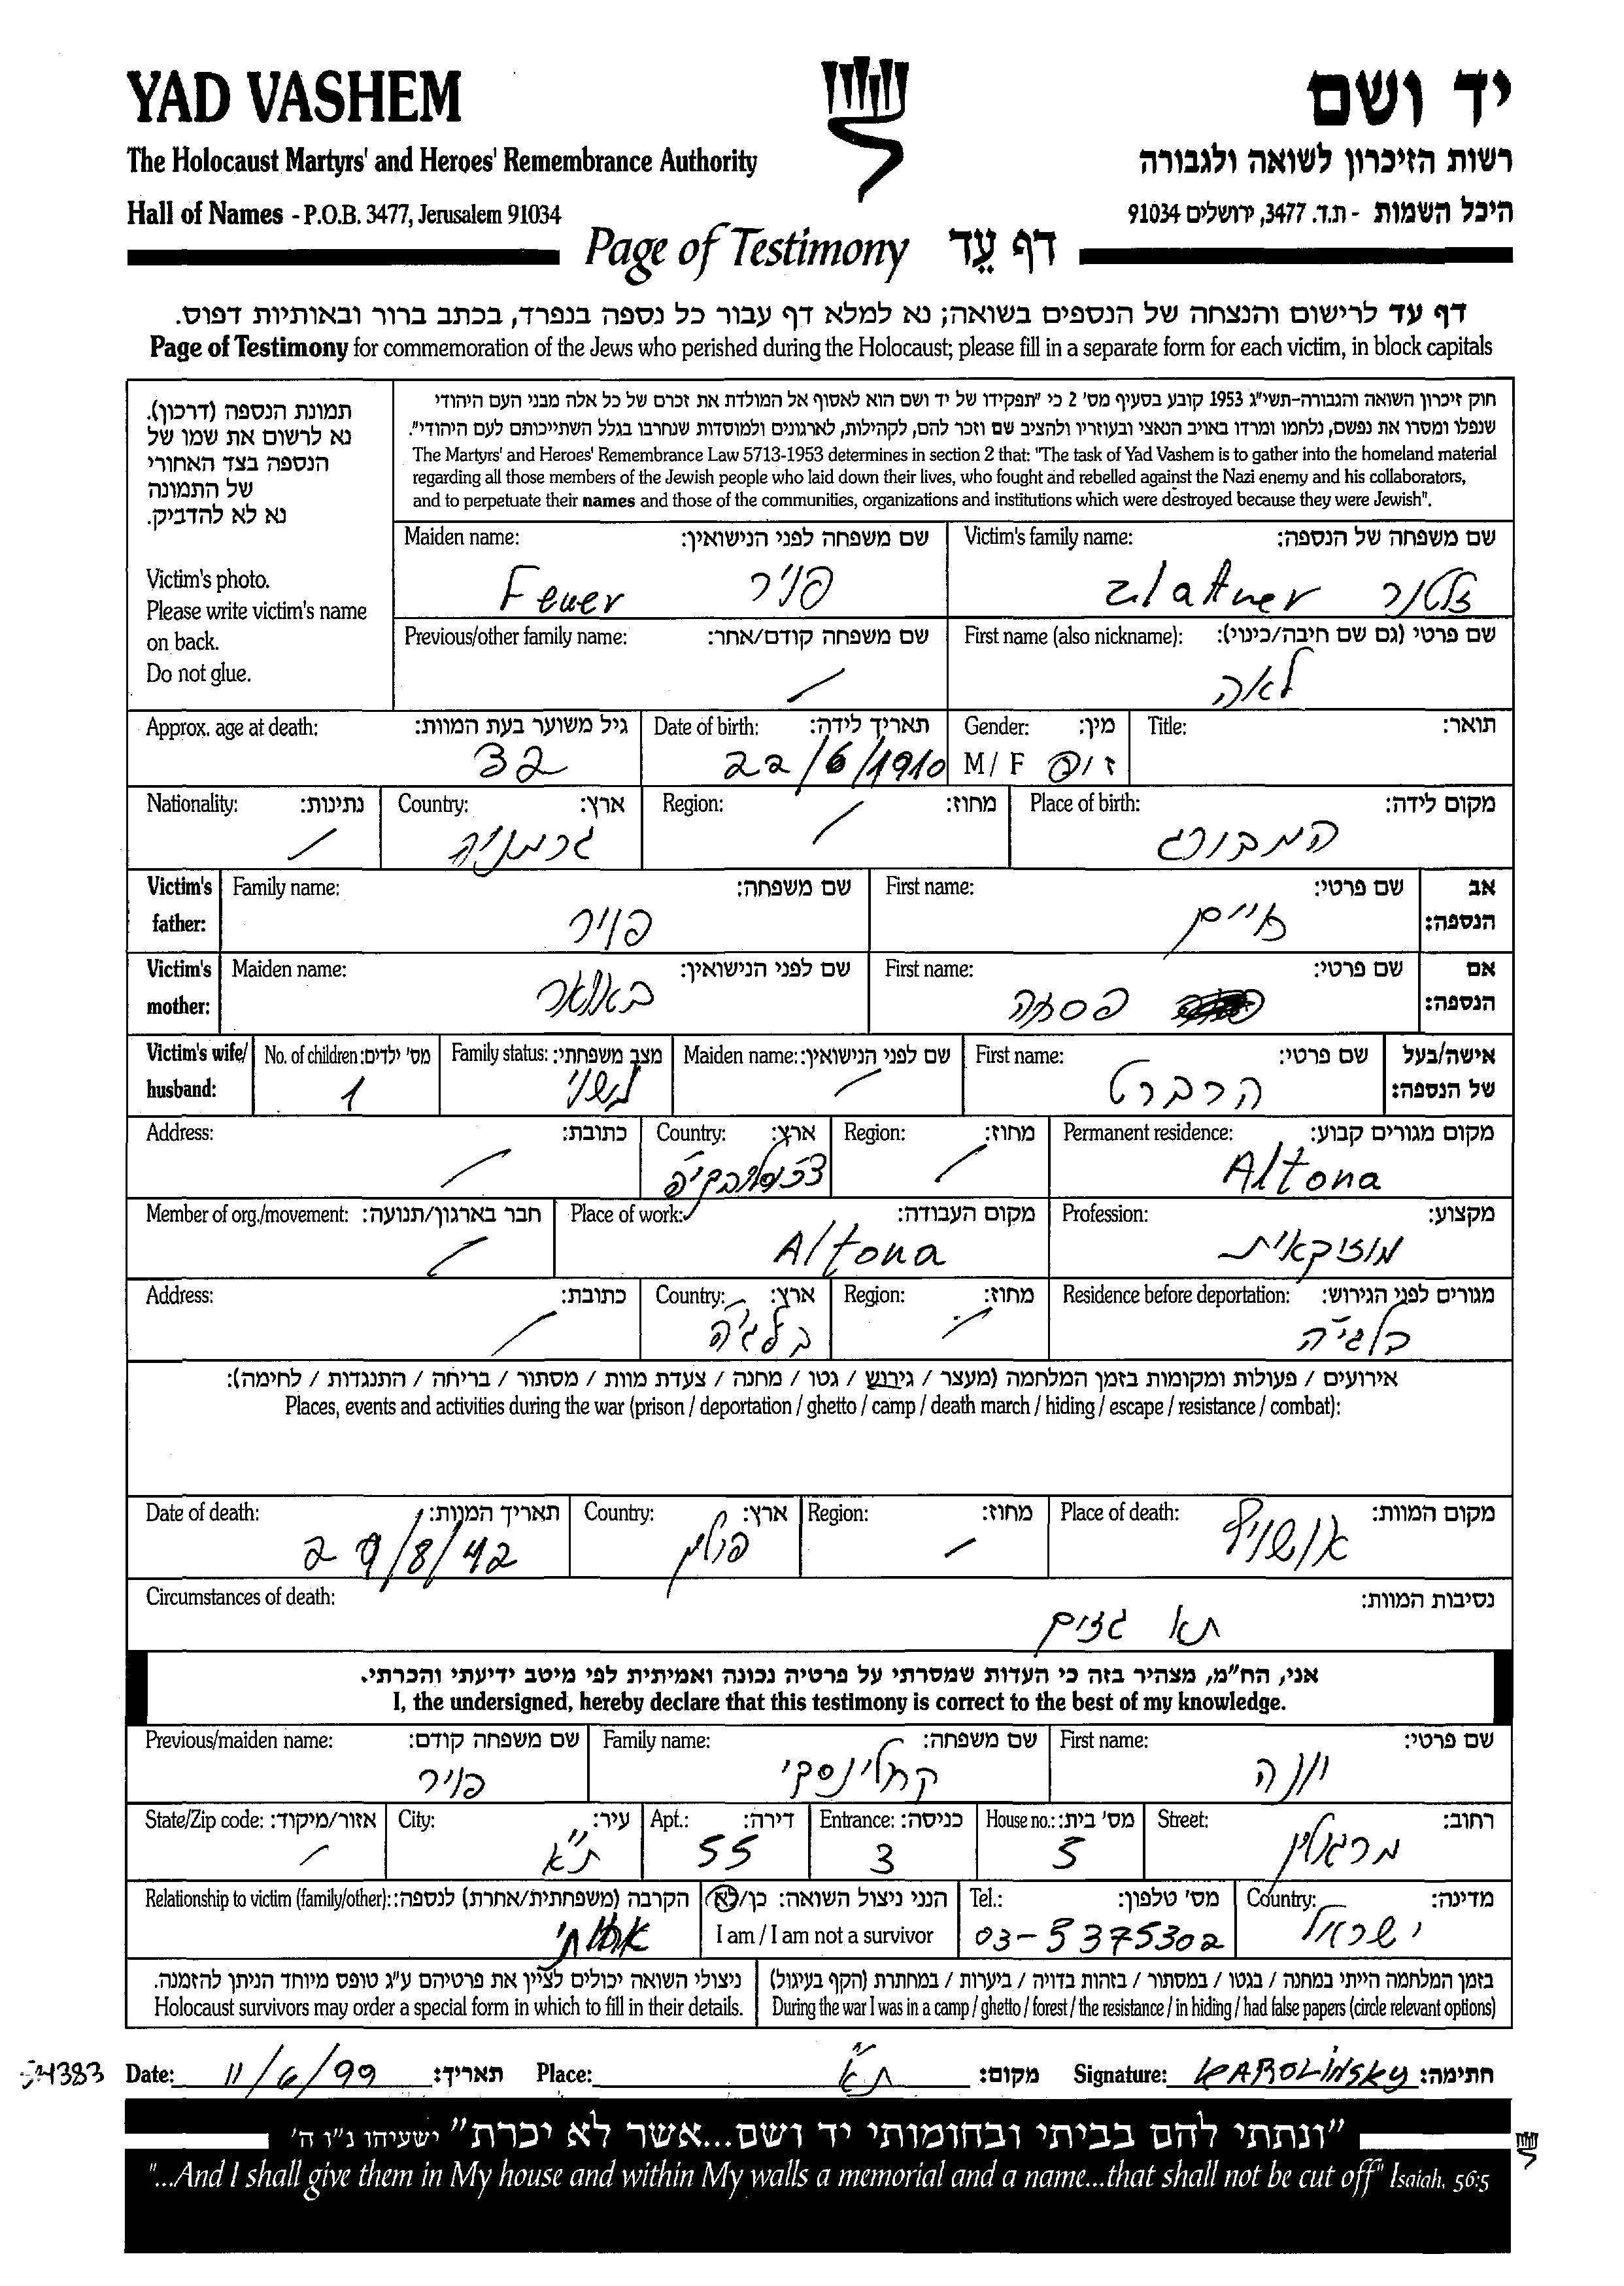 YAD VASHEM
יד ושם
The Holocaust Martyrs' and Heroes' Remembrance Authority
רשות הזיכרון לשואה ולגבורה
Hall of Names - P.O.B. 3477, Jerusalem 91034
היכל השמות - ת.ד. 3477, ירושלים 91034
Page of Testimony דף עֵד
דף עד לרישום והנצחה של הנספים בשואה; נא למלא דף עבור כל נספה בנפרד, בכתב ברור ובאותיות דפוס.
Page of Testimony for commemoration of the Jews who perished during the Holocaust; please fill in a separate form for each victim, in block capitals
תמונת הנספה (דרכון).
נא לרשום את שמו של
הנספה בצד האחורי
של התמונה
נא לא להדביק.
Victim's photo.
Please write victim's name
on back.
Do not glue.
חוק זיכרון השואה והגבורה-תשי"ג 1953 קובע בסעיף מס' 2 כי "תפקידו של יד ושם הוא לאסוף אל המולדת את זכרם של כל אלה מבני העם היהודי
שנפלו ומסרו את נפשם, נלחמו ומרדו באויב הנאצי ובעוזריו ולהציב שם וזכר להם, לקהילות, לארגונים ולמוסדות שנחרבו בגלל השתייכותם לעם היהודי".
The Martyrs' and Heroes' Remembrance Law 5713-1953 determines in section 2 that: "The task of Yad Vashem is to gather into the homeland material
regarding all those members of the Jewish people who laid down their lives, who fought and rebelled against the Nazi enemy and his collaborators,
and to perpetuate their names and those of the communities, organizations and institutions which were destroyed because they were Jewish".
Victim's family name: שם משפחה של הנספה:
זלטנר Zlattner
Maiden name: שם משפחה לפני הנישואין:
פויר Feuer
First name (also nickname): שם פרטי (גם שם חיבה/כינוי):
לאה
Previous/other family name: שם משפחה קודם/אחר:
/
Title: תואר:
Gender: מין:
M / F ז / נ
Date of birth: תאריך לידה:
22/6/1910
Approx. age at death: גיל משוער בעת המוות:
32
Place of birth: מקום לידה:
המבורג
Region: מחוז:
/
Country: ארץ:
גרמניה
Nationality: נתינות:
/
Victim's father: אב הנספה:
First name: שם פרטי:
חיים
Family name: שם משפחה:
פויר
Victim's mother: אם הנספה:
First name: שם פרטי:
פסחה
Maiden name: שם לפני הנישואין:
Victim's wife/ husband: אישה/בעל של הנספה:
First name: שם פרטי:
הרברט
Maiden name: שם לפני הנישואין:
/
Family status: מצב משפחתי:
נשוי
No. of children: מס' ילדים:
1
Permanent residence: מקום מגורים קבוע:
Altona
Region: מחוז:
/
Country: ארץ:
Address: כתובת:
/
Profession: מקצוע:
מוזיקאית
Place of work: מקום העבודה:
Altona
Member of org./movement: חבר בארגון/תנועה:
/
Residence before deportation: מגורים לפני הגירוש:
בלגיה
Region: מחוז:
/
Country: ארץ:
בלגיה
Address: כתובת:
/
אירועים / פעולות ומקומות בזמן המלחמה (מעצר / גירוש / גטו / מחנה / צעדת מוות / מסתור / בריחה / התנגדות / לחימה):
Places, events and activities during the war (prison / deportation / ghetto / camp / death march / hiding / escape / resistance / combat):
Place of death: מקום המוות:
אושויץ
Region: מחוז:
/
Country: ארץ:
פולין
Date of death: תאריך המוות:
29/8/42
Circumstances of death: נסיבות המוות:
תא גזים
אני, הח"מ, מצהיר בזה כי העדות שמסרתי על פרטיה נכונה ואמיתית לפי מיטב ידיעתי והכרתי.
I, the undersigned, hereby declare that this testimony is correct to the best of my knowledge.
First name: שם פרטי:
יונה
Family name: שם משפחה:
קרולינסקי
Previous/maiden name: שם משפחה קודם:
פויר
Street: רחוב:
מרגולין
House no.: מס' בית:
5
Entrance: כניסה:
3
Apt.: דירה:
55
City: עיר:
ת"א
State/Zip code: אזור/מיקוד:
/
Country: מדינה:
ישראל
Tel.: מס' טלפון:
03-5375302
הנני ניצול השואה: כן/לא
I am / I am not a survivor
Relationship to victim (family/other): הקרבה (משפחתית/אחרת) לנספה:
אחותי
בזמן המלחמה הייתי במחנה / בגטו / במסתור / בזהות בדויה / ביערות / במחתרת (הקף בעיגול)
During the war I was in a camp / ghetto / forest / the resistance / in hiding / had false papers (circle relevant options)
ניצולי השואה יכולים לציין את פרטיהם ע"ג טופס מיוחד הניתן להזמנה.
Holocaust survivors may order a special form in which to fill in their details.
Date: 11/6/99 תאריך: Place: ת"א מקום: Signature: KAROLINSKY חתימה:
"ונתתי להם בביתי ובחומותי יד ושם...אשר לא יכרת" ישעיהו נ"ו ה'
"...And I shall give them in My house and within My walls a memorial and a name...that shall not be cut off" Isaiah, 56:5